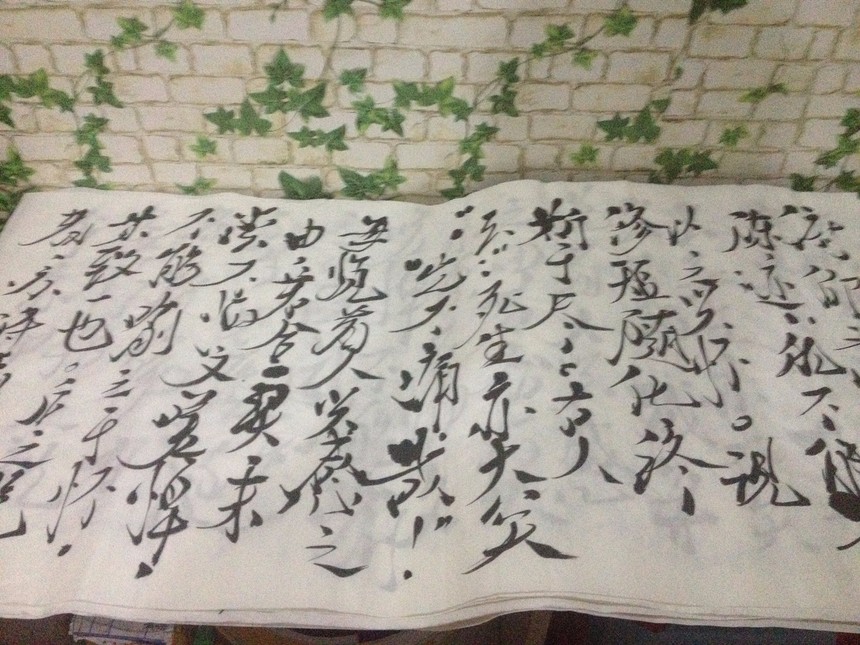 陈迹犹不能
以之兴怀。况
修短随化终
期于尽。古人
云:死生亦大矣
岂不痛哉!
每览昔人兴感之
由若合一契未
尝不临文嗟悼!
不能喻之于怀.
其致一也。后之览
者亦将有